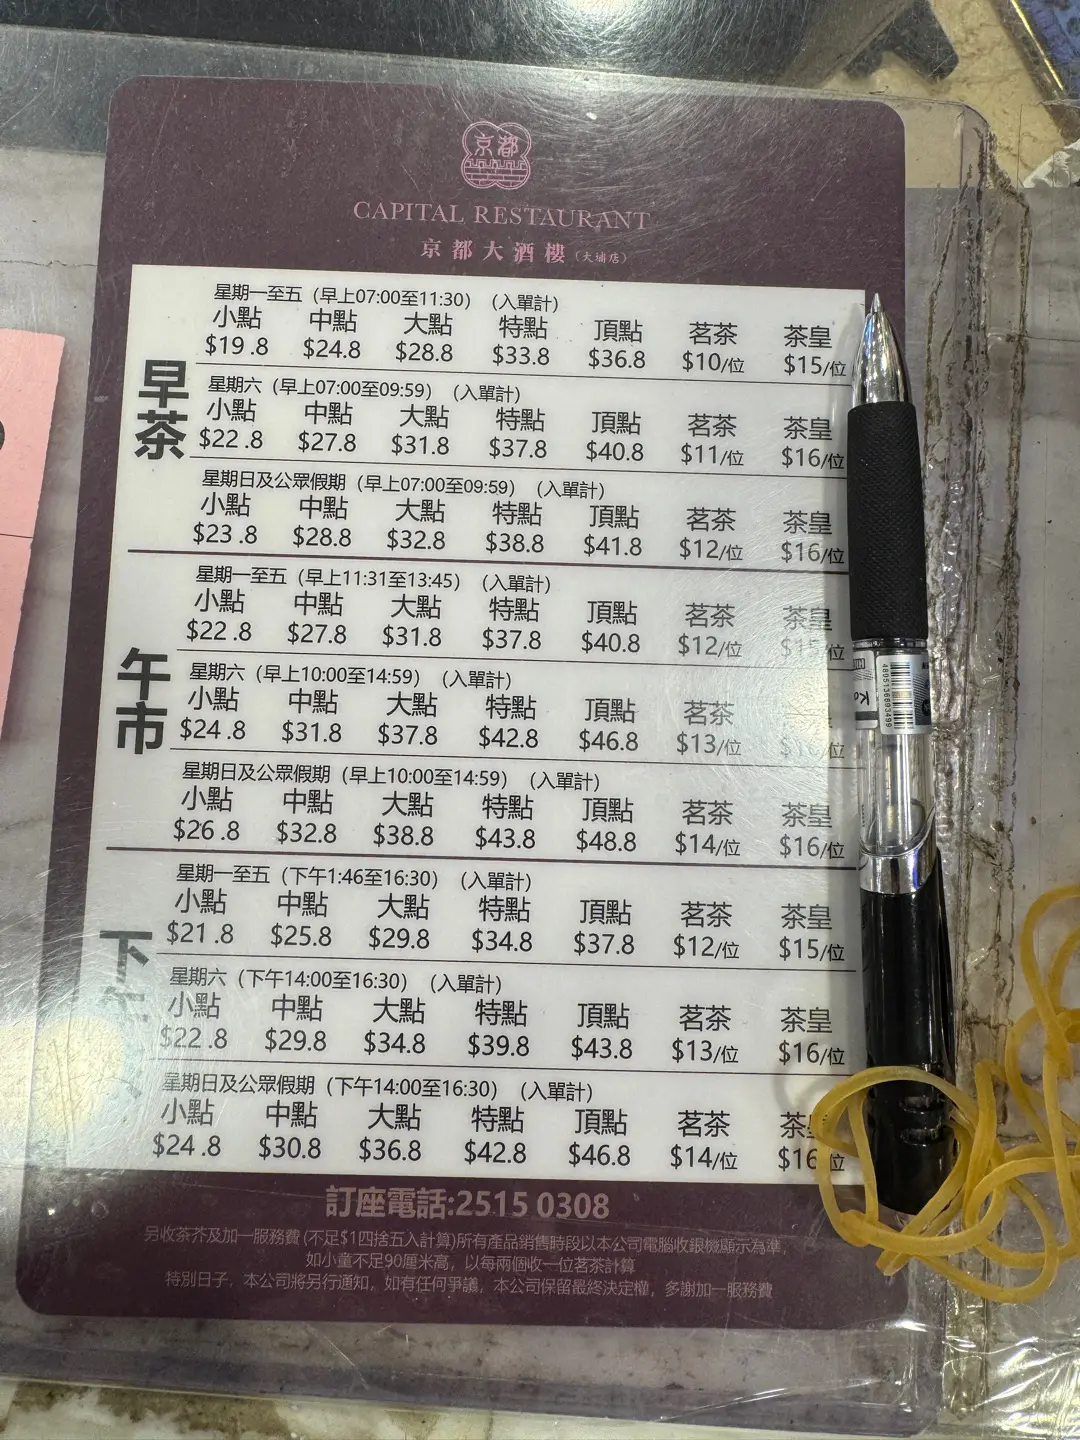 京都
CAPITAL RESTAURANT
京都大酒樓(大埔店)
早茶
星期一至五 (早上07:00至11:30) (入單計)
小點 中點 大點 特點 頂點 茗茶 茶皇
$19.8 $24.8 $28.8 $33.8 $36.8 $10/位 $15/位
星期六 (早上07:00至09:59) (入單計)
小點 中點 大點 特點 頂點 茗茶 茶皇
$22.8 $27.8 $31.8 $37.8 $40.8 $11/位 $16/位
星期日及公眾假期 (早上07:00至09:59) (入單計)
小點 中點 大點 特點 頂點 茗茶 茶皇
$23.8 $28.8 $32.8 $38.8 $41.8 $12/位 $16/位
午市
星期一至五 (早上11:31至13:45) (入單計)
小點 中點 大點 特點 頂點 茗茶 茶皇
$22.8 $27.8 $31.8 $37.8 $40.8 $12/位 $15/位
星期六 (早上10:00至14:59) (入單計)
小點 中點 大點 特點 頂點 茗茶
$24.8 $31.8 $37.8 $42.8 $46.8 $13/位 $16/位
星期日及公眾假期 (早上10:00至14:59) (入單計)
小點 中點 大點 特點 頂點 茗茶 茶皇
$26.8 $32.8 $38.8 $43.8 $48.8 $14/位 $16/位
下午
星期一至五 (下午1:46至16:30) (入單計)
小點 中點 大點 特點 頂點 茗茶 茶皇
$21.8 $25.8 $29.8 $34.8 $37.8 $12/位 $15/位
星期六 (下午14:00至16:30) (入單計)
小點 中點 大點 特點 頂點 茗茶 茶皇
$22.8 $29.8 $34.8 $39.8 $43.8 $13/位 $16/位
星期日及公眾假期 (下午14:00至16:30) (入單計)
小點 中點 大點 特點 頂點 茗茶 茶
$24.8 $30.8 $36.8 $42.8 $46.8 $14/位 $16 位
訂座電話:2515 0308
另收茶芥及加一服務費(不足$1四捨五入計算)所有產品銷售時段以本公司電腦收銀機顯示為準,
如小童不足90厘米高, 以每兩個收一位茗茶計算
特別日子, 本公司將另行通知, 如有任何爭議, 本公司保留最終決定權, 多謝加一服務費
4895136893499